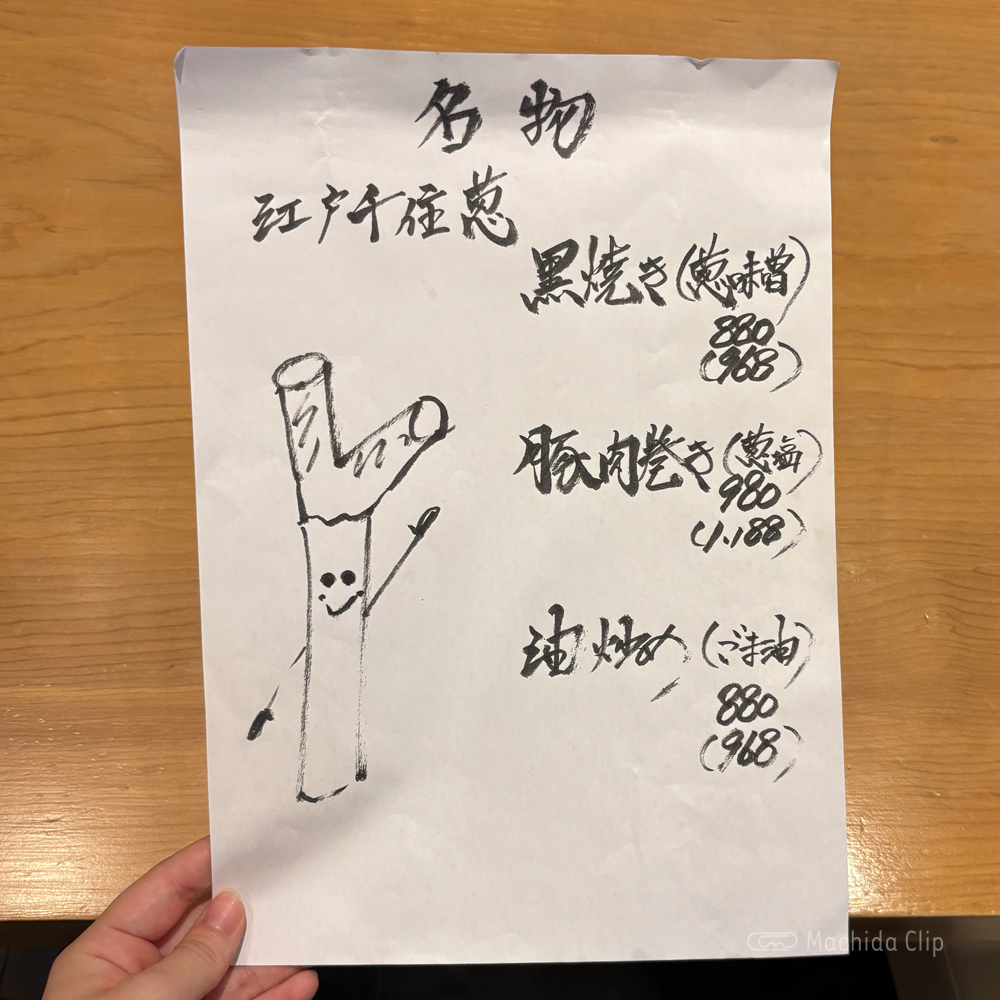 名物
江戸千住葱
黒焼き(葱味噌)
880
(968)
豚肉巻き(葱塩)
980
(1,188)
油炒め(ごま油)
880
(968)
Machida Clip